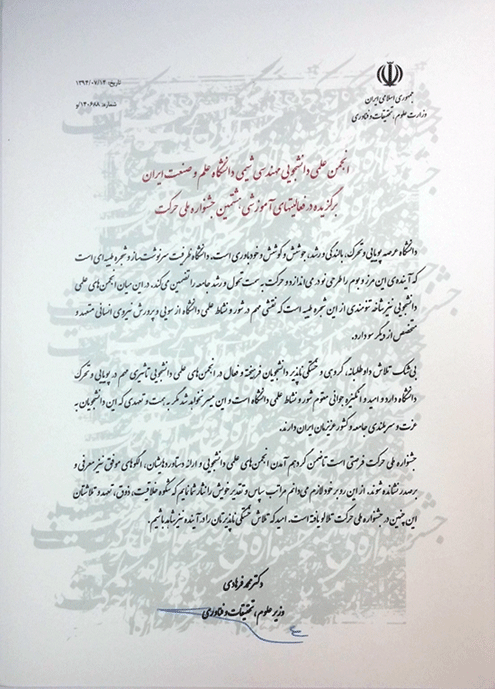 جمهوری اسلامی ایران
وزارت علوم، تحقیقات و فناوری
تاریخ: ۱۳۹۴/۰۷/۱۴
شماره: ۱۴۰۶۸۸/و
انجمن علمی دانشجویی مهندسی شیمی دانشگاه علم و صنعت ایران
برگزیده در فعالیتهای آموزشی هشتمین جشنواره ملی حرکت
دانشگاه عرصه پویایی و تحرک، بالندگی و رشد، جوشش و کوشش و خودباوری است. دانشگاه ظرفیت سرنوشت ساز و شجره طیبه ای است
که آینده‌ی این مرز و بوم را طرحی نو در می اندازد و حرکت به سمت تحول و رشد جامعه را تضمین می‌کند. در این میان انجمن‌های علمی
دانشجویی نیز شاخه تنومندی از این شجره طیبه است که نقشی مهم در شور و نشاط علمی دانشگاه از سویی و پرورش نیروی انسانی متعهد و
متخصص از دیگر سو دارد.
بی‌شک تلاش داوطلبانه، گروهی و خستگی ناپذیر دانشجویان فرهیخته و فعال در انجمن‌های علمی دانشجویی تاثیری مهم در پویایی و تحرک
دانشگاه دارد و امید و انگیزه جوانی مقوم شور و نشاط علمی دانشگاه است و این میسر نخواهد شد مگر به همت و تعهدی که این دانشجویان به
عزت و سربلندی جامعه و کشور عزیزمان ایران دارند.
جشنواره ملی حرکت فرصتی است تا ضمن گرد هم آمدن انجمن‌های علمی دانشجویی و ارائه دستاوردهایشان، الگوهای موفق نیز معرفی و
بر صدر نشانده شوند. از این رو بر خود لازم می‌دانم مراتب سپاس و تقدیر خویش را نثار شما نمایم که شکوه خلاقیت، ذوق، تعهد و تلاشتان
این چنین در جشنواره ملی حرکت تلالو یافته است. امید که تلاش خستگی ناپذیرتان را در آینده نیز شاهد باشیم.
دکتر محمد فرهادی
وزیر علوم، تحقیقات و فناوری